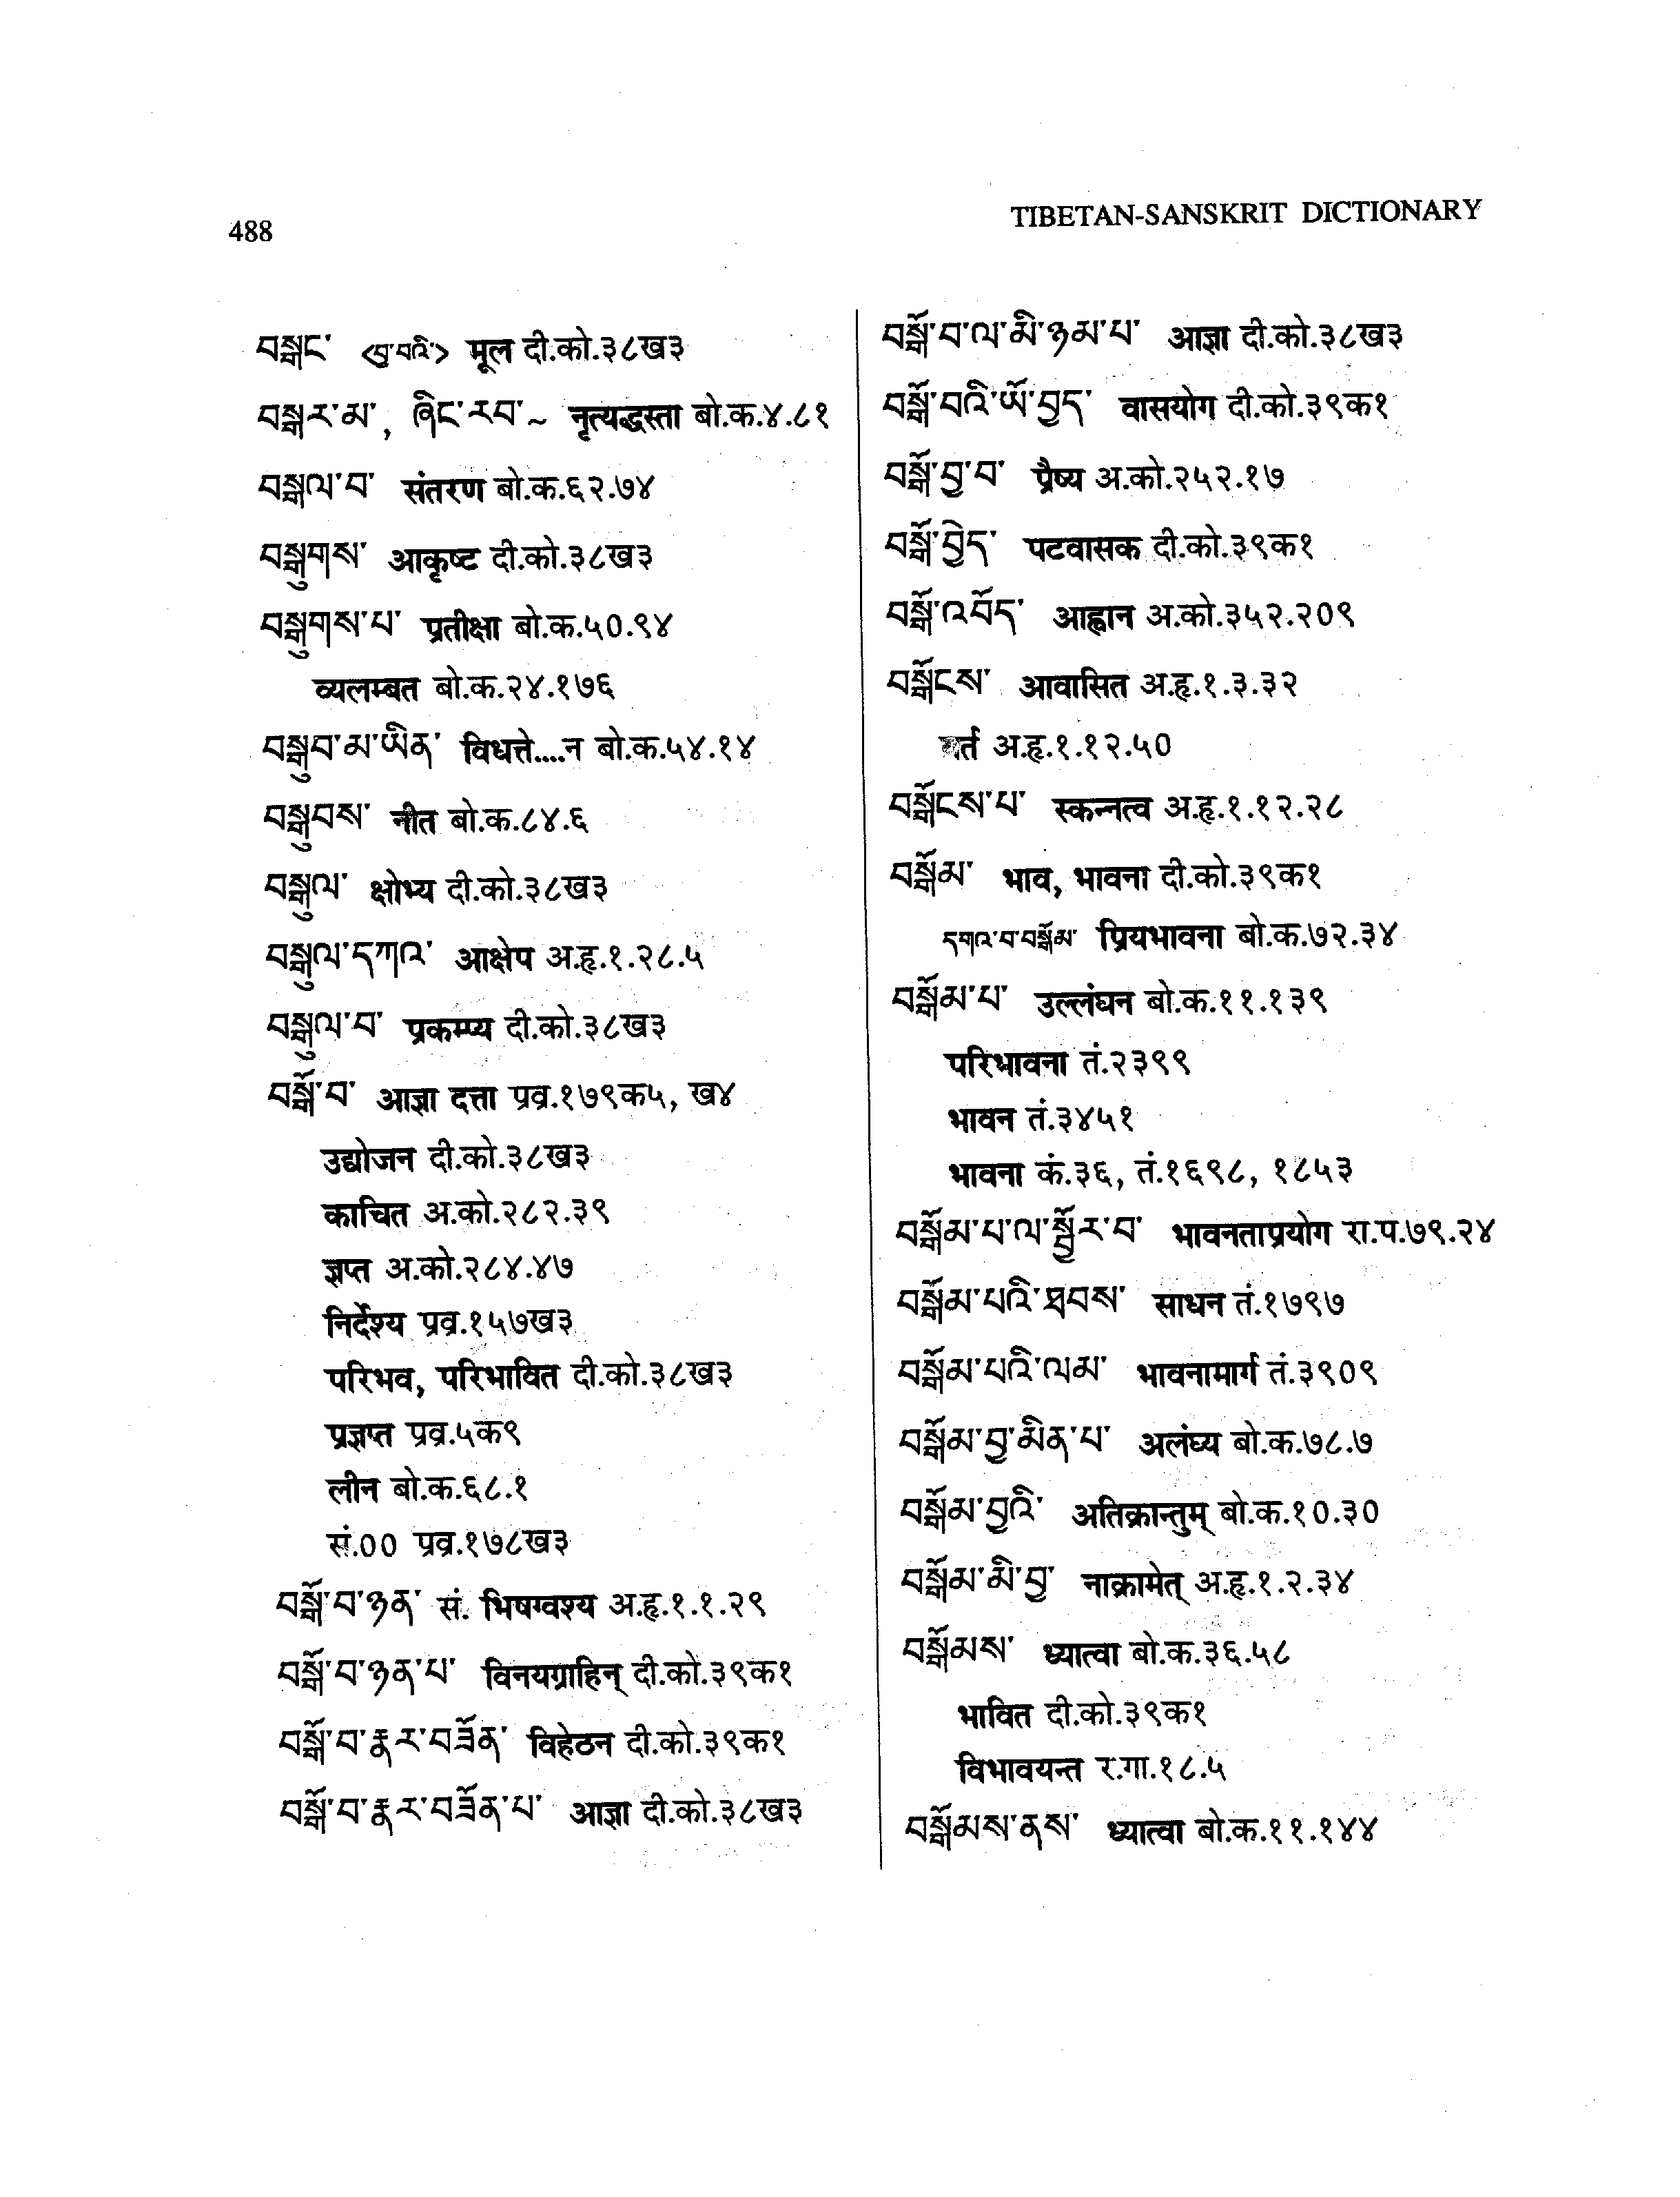 488
TIBETAN-SANSKRIT DICTIONARY
བསྒྲང་ <བྲ་བའི་> मूल दी.को.३८ख३
བསྒྲར་མ་, ཞིང་རབ་ ~ नृत्यद्धस्ता बो.क.४.८१
བསྒྲལ་བ་ संतरण बो.क.६२.७४
བསྒུགས་ आकृष्ट दी.को.३८ख३
བསྒུགས་པ་ प्रतीक्षा बो.क.५०.९४
व्यलम्बत बो.क.२४.१७६
བསྒྲུབ་མ་ཡིན་ विधत्ते....न बो.क.५४.१४
བསྒྲུབས་ नीत बो.क.८४.६
བསྒུལ་ क्षोभ्य दी.को.३८ख३
བསྒུལ་དཀའ་ आक्षेप अ.हृ.१.२८.५
བསྒུལ་བ་ प्रकम्प्य दी.को.३८ख३
བསྒོ་བ་ आज्ञा दत्ता प्रव्र.१७९क५, ख४
उद्योजन दी.को.३८ख३
काचित अ.को.२८२.३९
ज्ञप्त अ.को.२८४.४७
निर्देश्य प्रव्र.१५७ख३
परिभव, परिभावित दी.को.३८ख३
प्रज्ञप्त प्रव्र.५क९
लीन बो.क.६८.१
सं.०० प्रव्र.१७८ख३
བསྒོ་བ་ཉན་ सं. भिषग्वश्य अ.हृ.१.१.२९
བསྒོ་བ་ཉན་པ་ विनयग्राहिन् दी.को.३९क१
བསྒོ་བ་རྣར་བཟོན་ विहेठन दी.को.३९क१
བསྒོ་བ་རྣར་བཟོན་པ་ आज्ञा दी.को.३८ख३
བསྒོ་བ་ལ་མི་ཉམ་པ་ आज्ञा दी.को.३८ख३
བསྒོ་བའི་ཡོ་བྱད་ वासयोग दी.को.३९क१
བསྒོ་བྱ་བ་ प्रैष्य अ.को.२५२.१७
བསྒོ་བྱེད་ पटवासक दी.को.३९क१
བསྒོ་འབོད་ आह्वान अ.को.३५२.२०९
བསྒོངས་ आवासित अ.हृ.१.३.३२
अ.हृ.१.१२.५०
བསྒོངས་པ་ स्कन्नत्व अ.हृ.१.१२.२८
བསྒོམ་ भाव, भावना दी.को.३९क१
དགའ་བ་བསྒོམ་ प्रियभावना बो.क.७२.३४
བསྒོམ་པ་ उल्लंघन बो.क.११.१३९
परिभावना तं.२३९९
भावन तं.३४५१
भावना कं.३६, तं.१६९८, १८५३
བསྒོམ་པ་ལ་སྦྱོར་བ་ भावनताप्रयोग रा.प.७९.२४
བསྒོམ་པའི་ཐབས་ साधन तं.१७९७
བསྒོམ་པའི་ལམ་ भावनामार्ग तं.३९०९
བསྒོམ་བྱ་མིན་པ་ अलंघ्य बो.क.७८.७
བསྒོམ་བྱའི་ अतिक्रान्तुम् बो.क.१०.३०
བསྒོམ་མི་བྱ་ नाक्रामेत् अ.हृ.१.२.३४
བསྒོམས་ ध्यात्वा बो.क.३६.५८
भावित दी.को.३९क१
विभावयन्त र.गा.१८.५
བསྒོམས་ནས་ ध्यात्वा बो.क.११.१४४